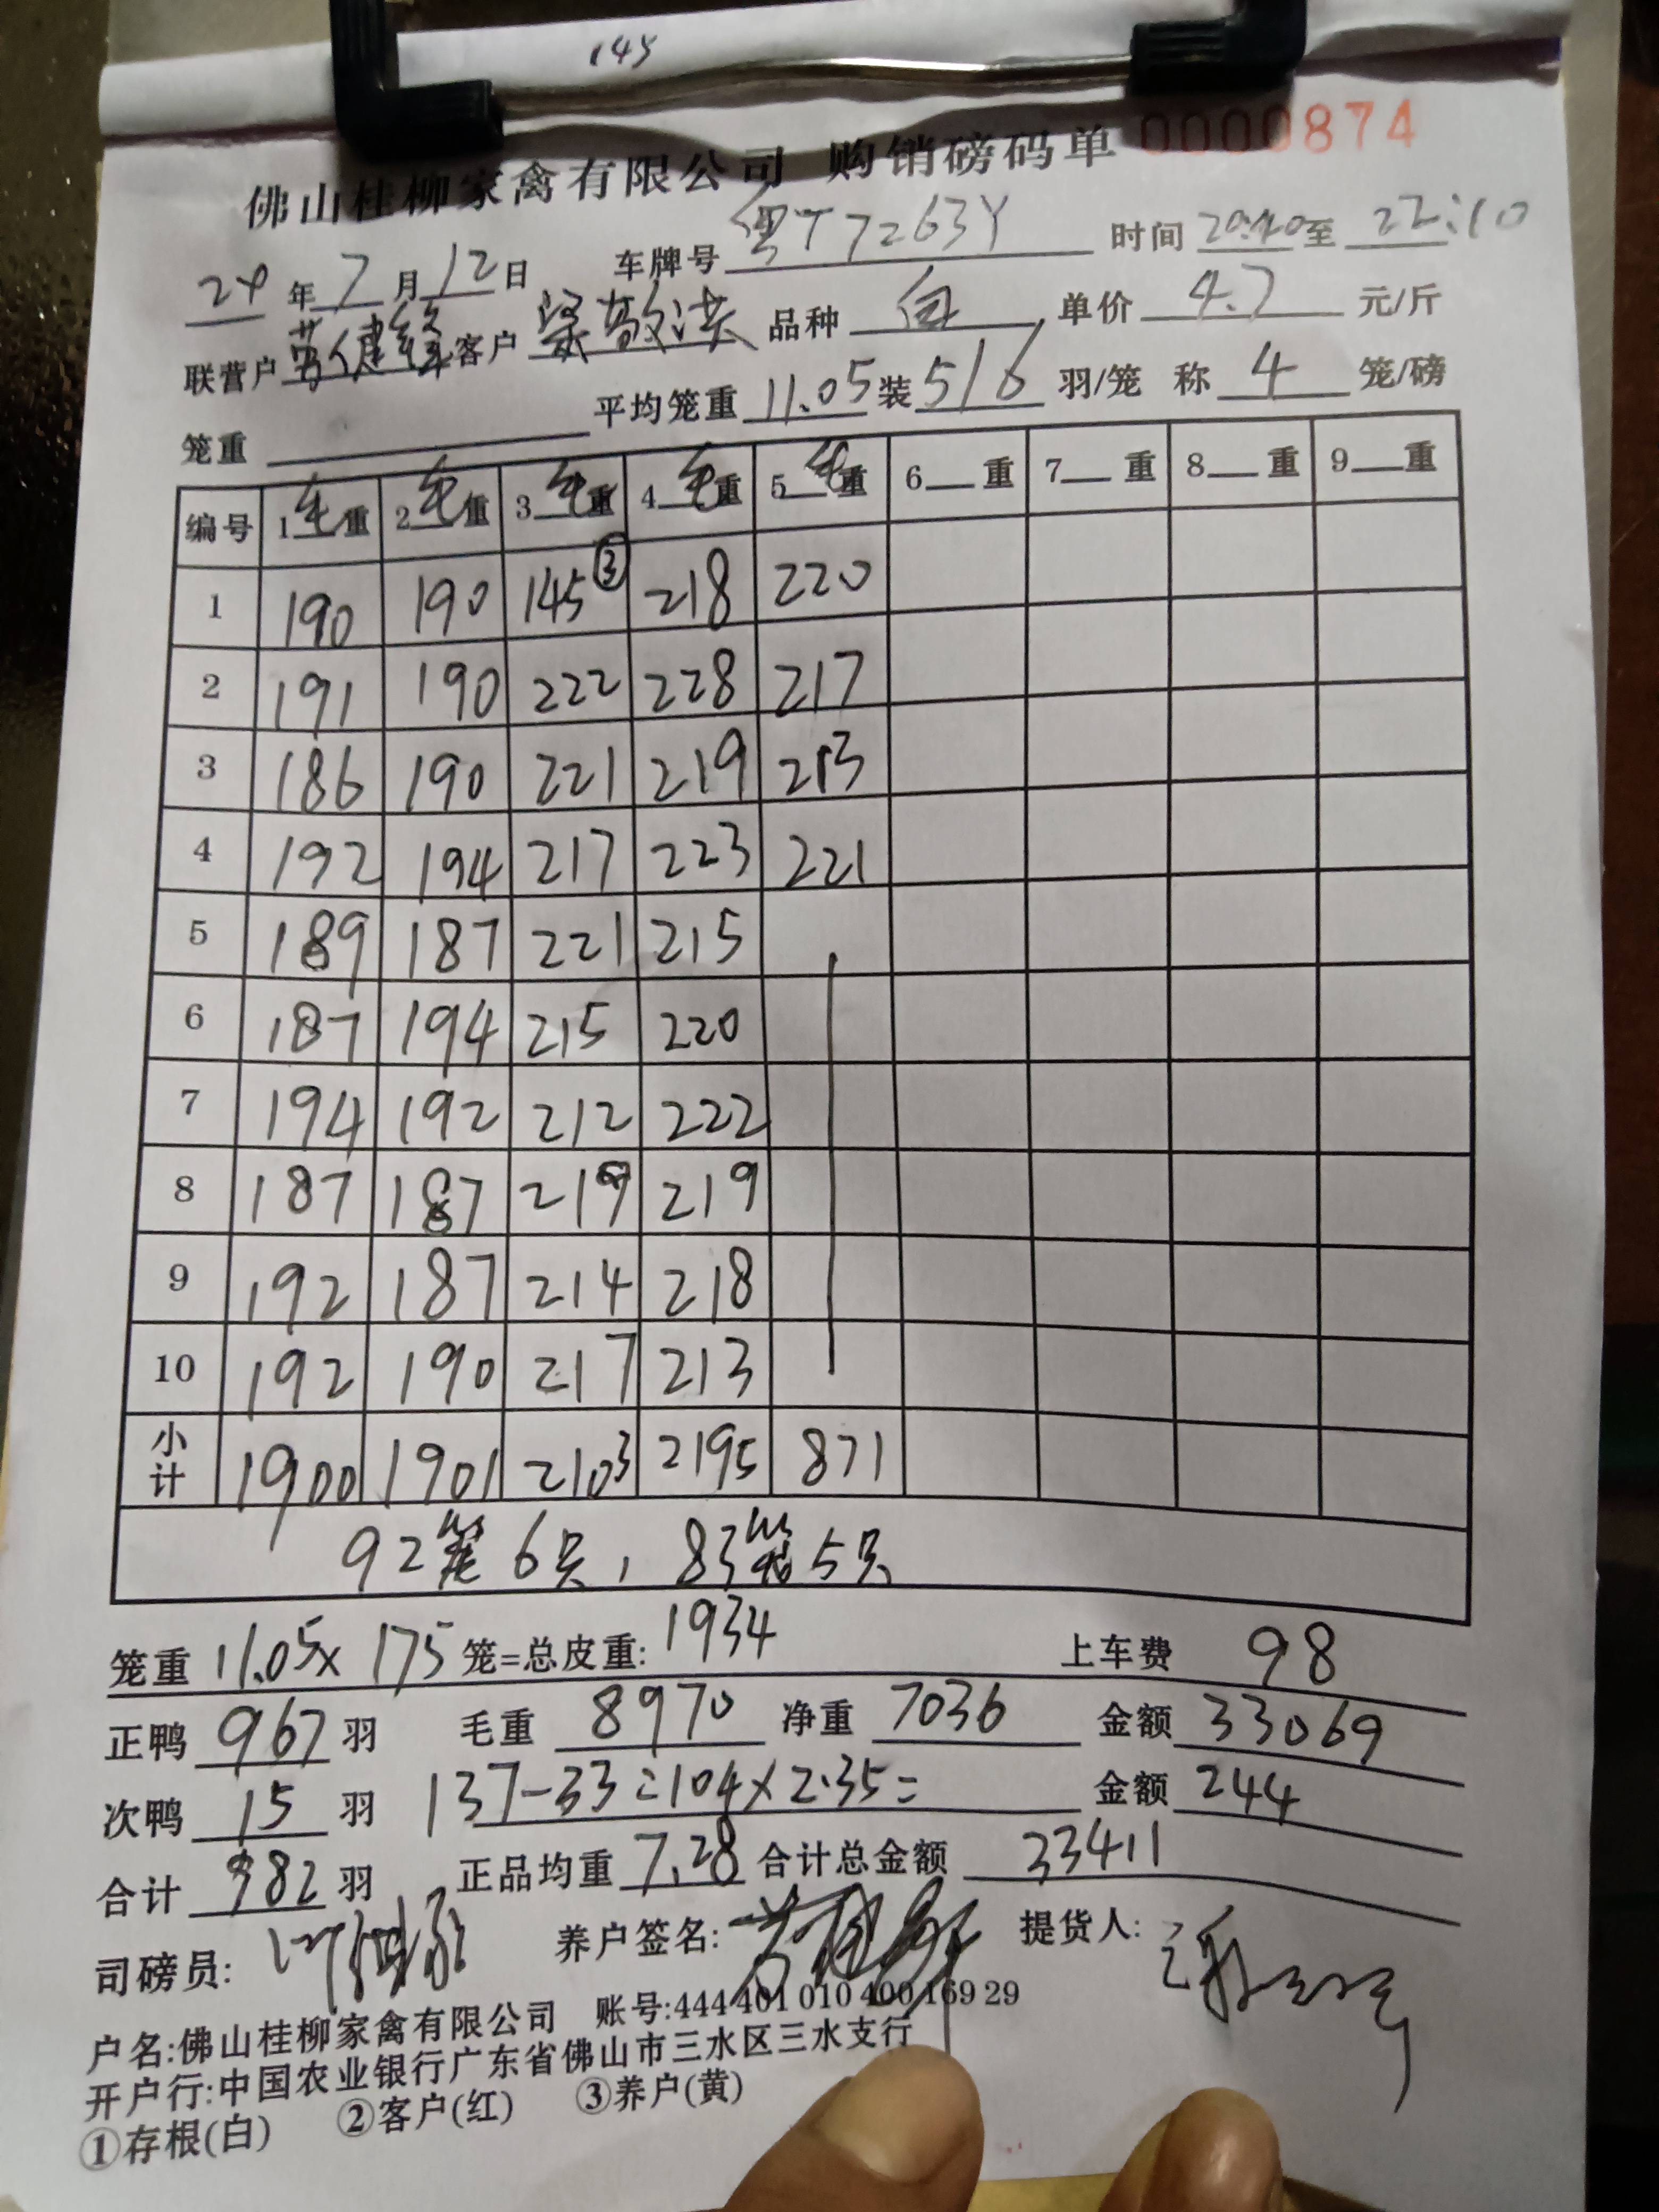 145
佛山桂柳家禽有限公司 购销磅码单 0000874
24年7月12日 车牌号 粤T7263Y 时间 20:20至 22:10
联营户 客户 梁敬洪 品种 白 单价 4.7 元/斤
笼重 平均笼重 11.05 装 5/6 羽/笼 称 4 笼/磅
编号 1毛重 2毛重 3毛重 4毛重 5毛重 6 重 7 重 8 重 9 重
1 190 190 145③ 218 220
2 191 190 222 228 217
3 186 190 221 219 213
4 192 194 217 223 221
5 189 187 221 215
6 187 194 215 220
7 194 192 212 222
8 187 187 219 219
9 192 187 214 218
10 192 190 217 213
小计 1900 1901 2103 2195 871
92笼6只, 83笼5只
笼重 11.05x 175 笼=总皮重: 1934 上车费 98
正鸭 967 羽 毛重 8970 净重 7036 金额 33069
次鸭 15 羽 137-33=104x2.35= 金额 244
合计 982 羽 正品均重 7.28 合计总金额 33411
司磅员: 养户签名: 提货人:
户名:佛山桂柳家禽有限公司 账号:444 401 010 400 169 29
开户行:中国农业银行广东省佛山市三水区三水支行
①存根(白) ②客户(红) ③养户(黄)